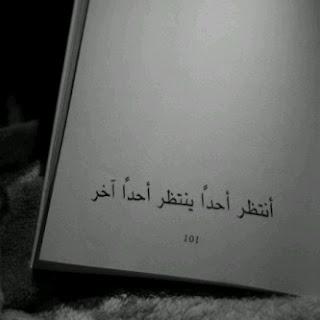 أنتظر أحداً ينتظر أحداً آخر
101